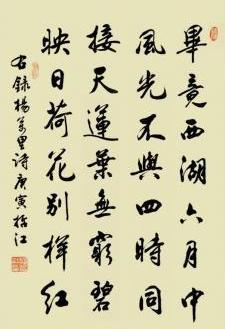 畢竟西湖六月中
風光不與四時同
接天蓮葉無窮碧
映日荷花別樣紅
右錄楊萬里詩庚寅
江